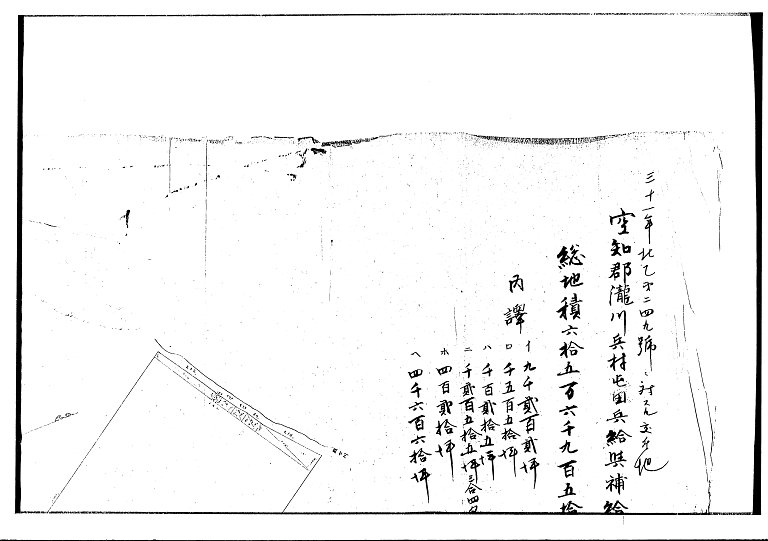 三十一年北乙第二四九號ニ対スル交付地
空知郡瀧川兵村屯田兵給與補給
総地積六拾五万六千九百五拾
内譯
イ 九千貳百貳坪
ロ 千五百五拾坪
ハ 千百貳拾五坪
ニ 千貳百五拾五坪三合四夕
ホ 四百貳拾坪
ヘ 四千六百六拾坪